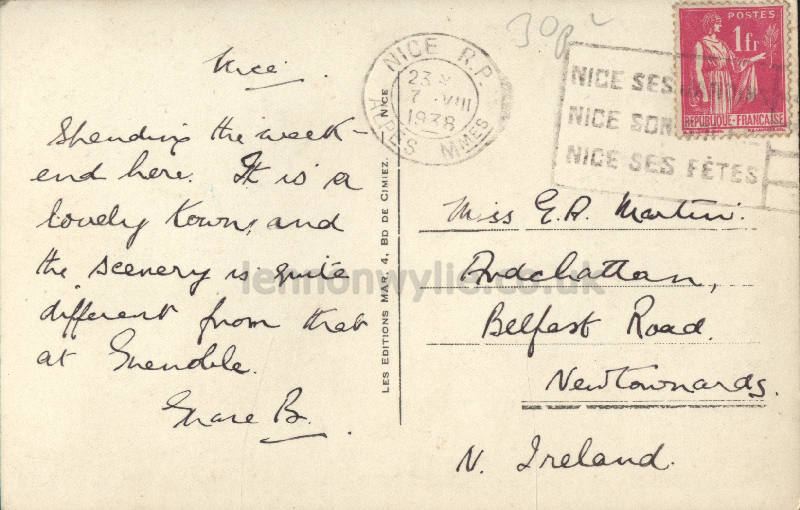 Nice.
Spending the week-
end here. It is a
lovely town, and
the scenery is quite
different from that
at Grenoble.
Grace B.
LES EDITIONS MAR, 4, BD DE CIMIEZ. NICE
30p
NICE R.P.
23
7 -VIII
1938
ALPES MMES
NICE SES
NICE SON
NICE SES FÊTES
POSTES
1fr
REPUBLIQUE-FRANÇAISE
Miss E.A. Martin.
Ardchattan,
Belfast Road.
Newtownards.
N. Ireland.
lennonwylie.co.uk